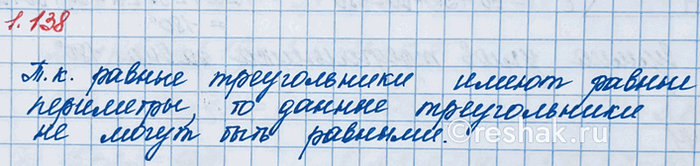 1.138
Т.к. равные треугольники имеют равные
периметры, то данные треугольники
не могут быть равными.
©reshak.ru